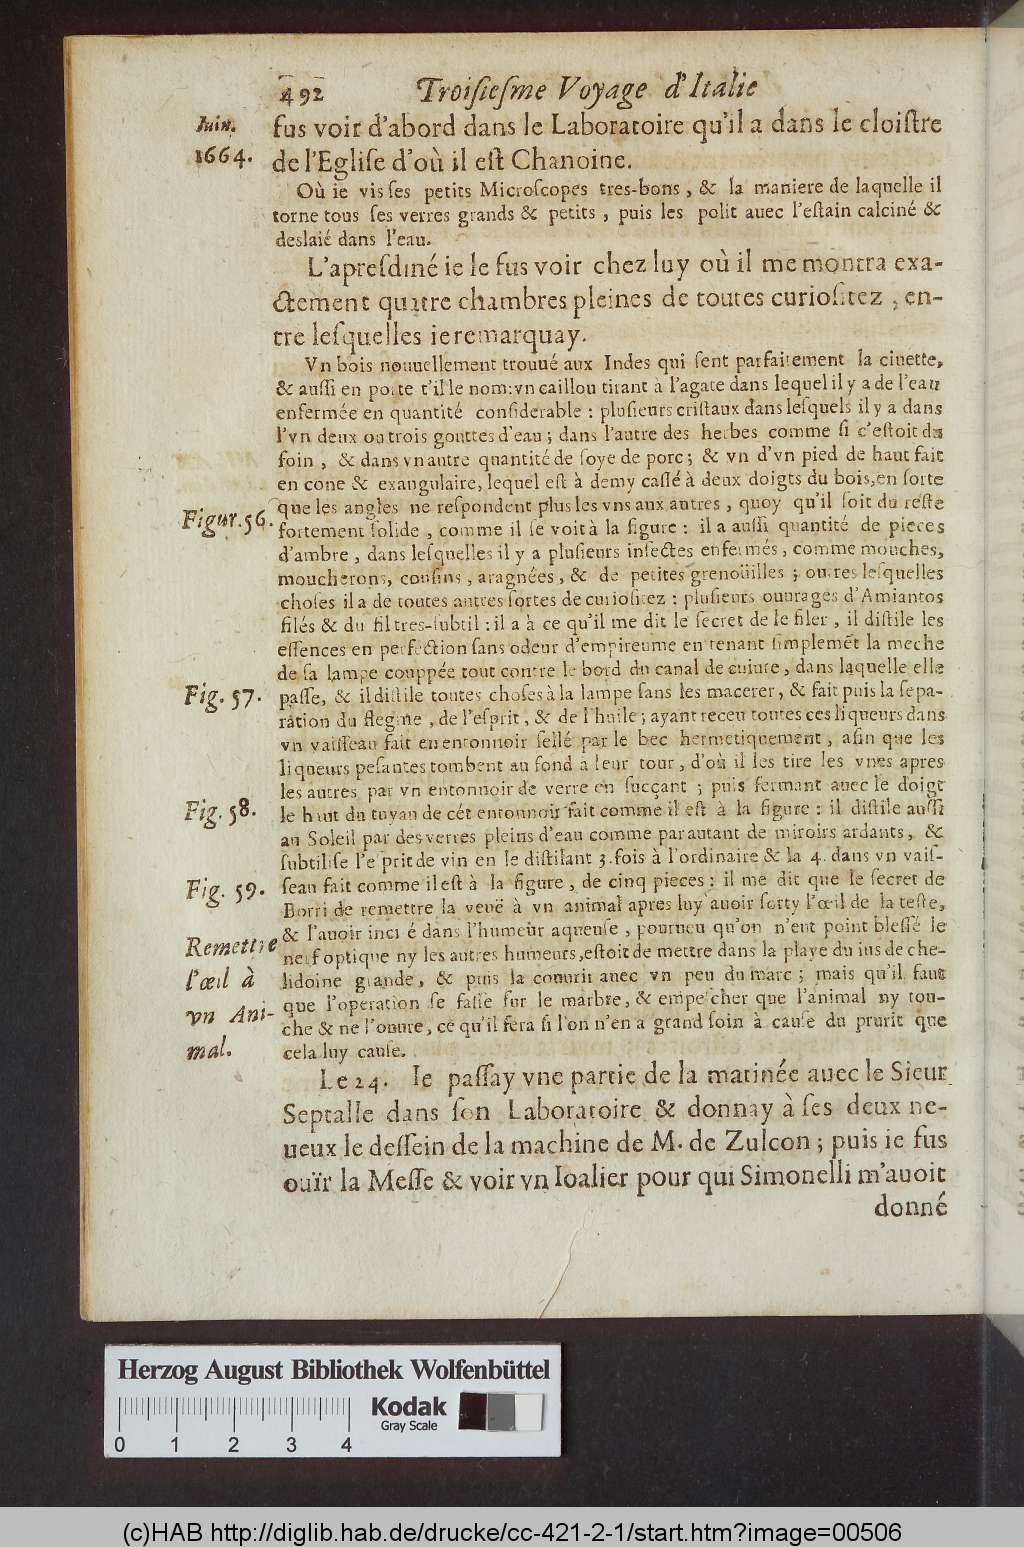 492 Troisiesme Voyage d'Italie
Juin.
1664.
fus voir d'abord dans le Laboratoire qu'il a dans le cloistre
de l'Eglise d'où il est Chanoine.
Où ie vis ses petits Microscopes tres-bons, & la maniere de laquelle il
torne tous ses verres grands & petits, puis les polit auec l'estain calciné &
deslaié dans l'eau.
L'apresdiné ie le fus voir chez luy où il me montra exa-
ctement quatre chambres pleines de toutes curiositez, en-
tre lesquelles ie remarquay.
Vn bois nouuellement trouué aux Indes qui sent parfaitement la ciuette,
& aussi en porte t'il le nom: vn caillou tirant à l'agate dans lequel il y a de l'eau
enfermée en quantité considerable: plusieurs cristaux dans lesquels il y a dans
l'vn deux ou trois gouttes d'eau; dans l'autre des herbes comme si c'estoit du
foin, & dans vn autre quantité de soye de porc; & vn d'vn pied de haut fait
en cone & exangulaire, lequel est à demy cassé à deux doigts du bois, en sorte
que les angles ne respondent plus les vns aux autres, quoy qu'il soit du reste
Figur. 56.
fortement solide, comme il se voit à la figure: il a aussi quantité de pieces
d'ambre, dans lesquelles il y a plusieurs insectes enfermés, comme mouches,
moucherons, cousins, aragnées, & de petites grenoüilles; outres lesquelles
choses il a de toutes autres sortes de curiositez: plusieurs ouurages d'Amiantos
filés & du fil tres-subtil: il a à ce qu'il me dit le secret de le filer, il distile les
essences en perfection sans odeur d'empireume en tenant simplemēt la meche
de sa lampe couppée tout contre le bord du canal de cuiure, dans laquelle elle
Fig. 57.
passe, & il distile toutes choses à la lampe sans les macerer, & fait puis la sepa-
ration du flegme, de l'esprit, & de l'huile; ayant receu toutes ces liqueurs dans
vn vaisseau fait en entonnoir sellé par le bec hermetiquement, afin que les
liqueurs pesantes tombent au fond à leur tour, d'où il les tire les vnes apres
les autres par vn entonnoir de verre en succant; puis fermant auec le doigt
Fig. 58.
le haut du tuyau de cét entonnoir fait comme il est à la figure: il distile aussi
au Soleil par des verres pleins d'eau comme par autant de miroirs ardants, &
subtilise l'esprit de vin en le distilant 3. fois à l'ordinaire & la 4. dans vn vais-
Fig. 59.
seau fait comme il est à la figure, de cinq pieces: il me dit que le secret de
Borri de remettre la veuë à vn animal apres luy auoir sorty l'œil de la teste,
Remettre
l'œil à
vn Ani-
mal.
& l'auoir inci é dans l'humeur aqueuse, pourueu qu'on n'eut point blessé le
nerf optique ny les autres humeurs, estoit de mettre dans la playe du ius de che-
lidoine grande, & puis la couurir auec vn peu du marc; mais qu'il faut
que l'operation se fasse sur le marbre, & empecher que l'animal ny tou-
che & ne l'ouure, ce qu'il fera si l'on n'en a grand soin à cause du prurit que
cela luy cause.
Le 24. Ie passay vne partie de la matinée auec le Sieur
Septalle dans son Laboratoire & donnay à ses deux ne-
ueux le dessein de la machine de M. de Zulcon; puis ie fus
ouïr la Messe & voir vn Ioalier pour qui Simonelli m'auoit
donné
Herzog August Bibliothek Wolfenbüttel
Kodak
Gray Scale
0 1 2 3 4
(c)HAB http://diglib.hab.de/drucke/cc-421-2-1/start.htm?image=00506